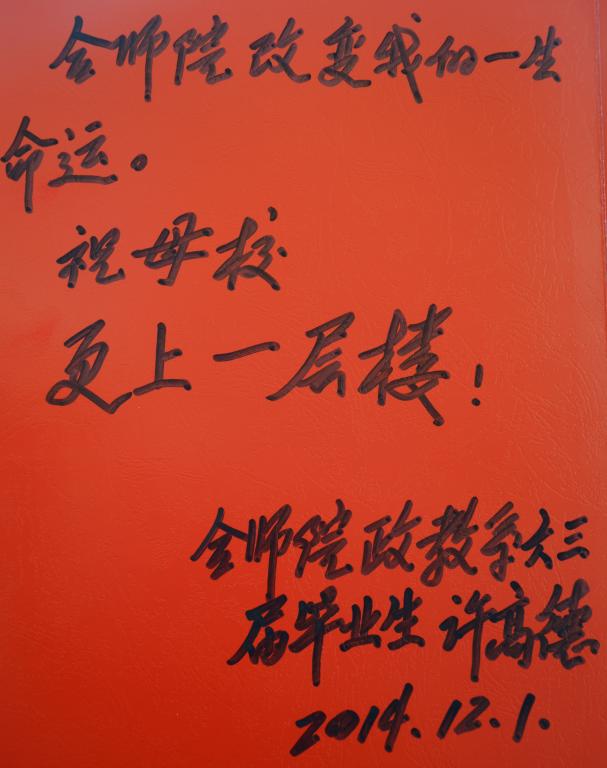 会师院改变我的一生
命运。
祝母校
更上一层楼!
会师院政教系大三
届毕业生 许高德
2014.12.1.